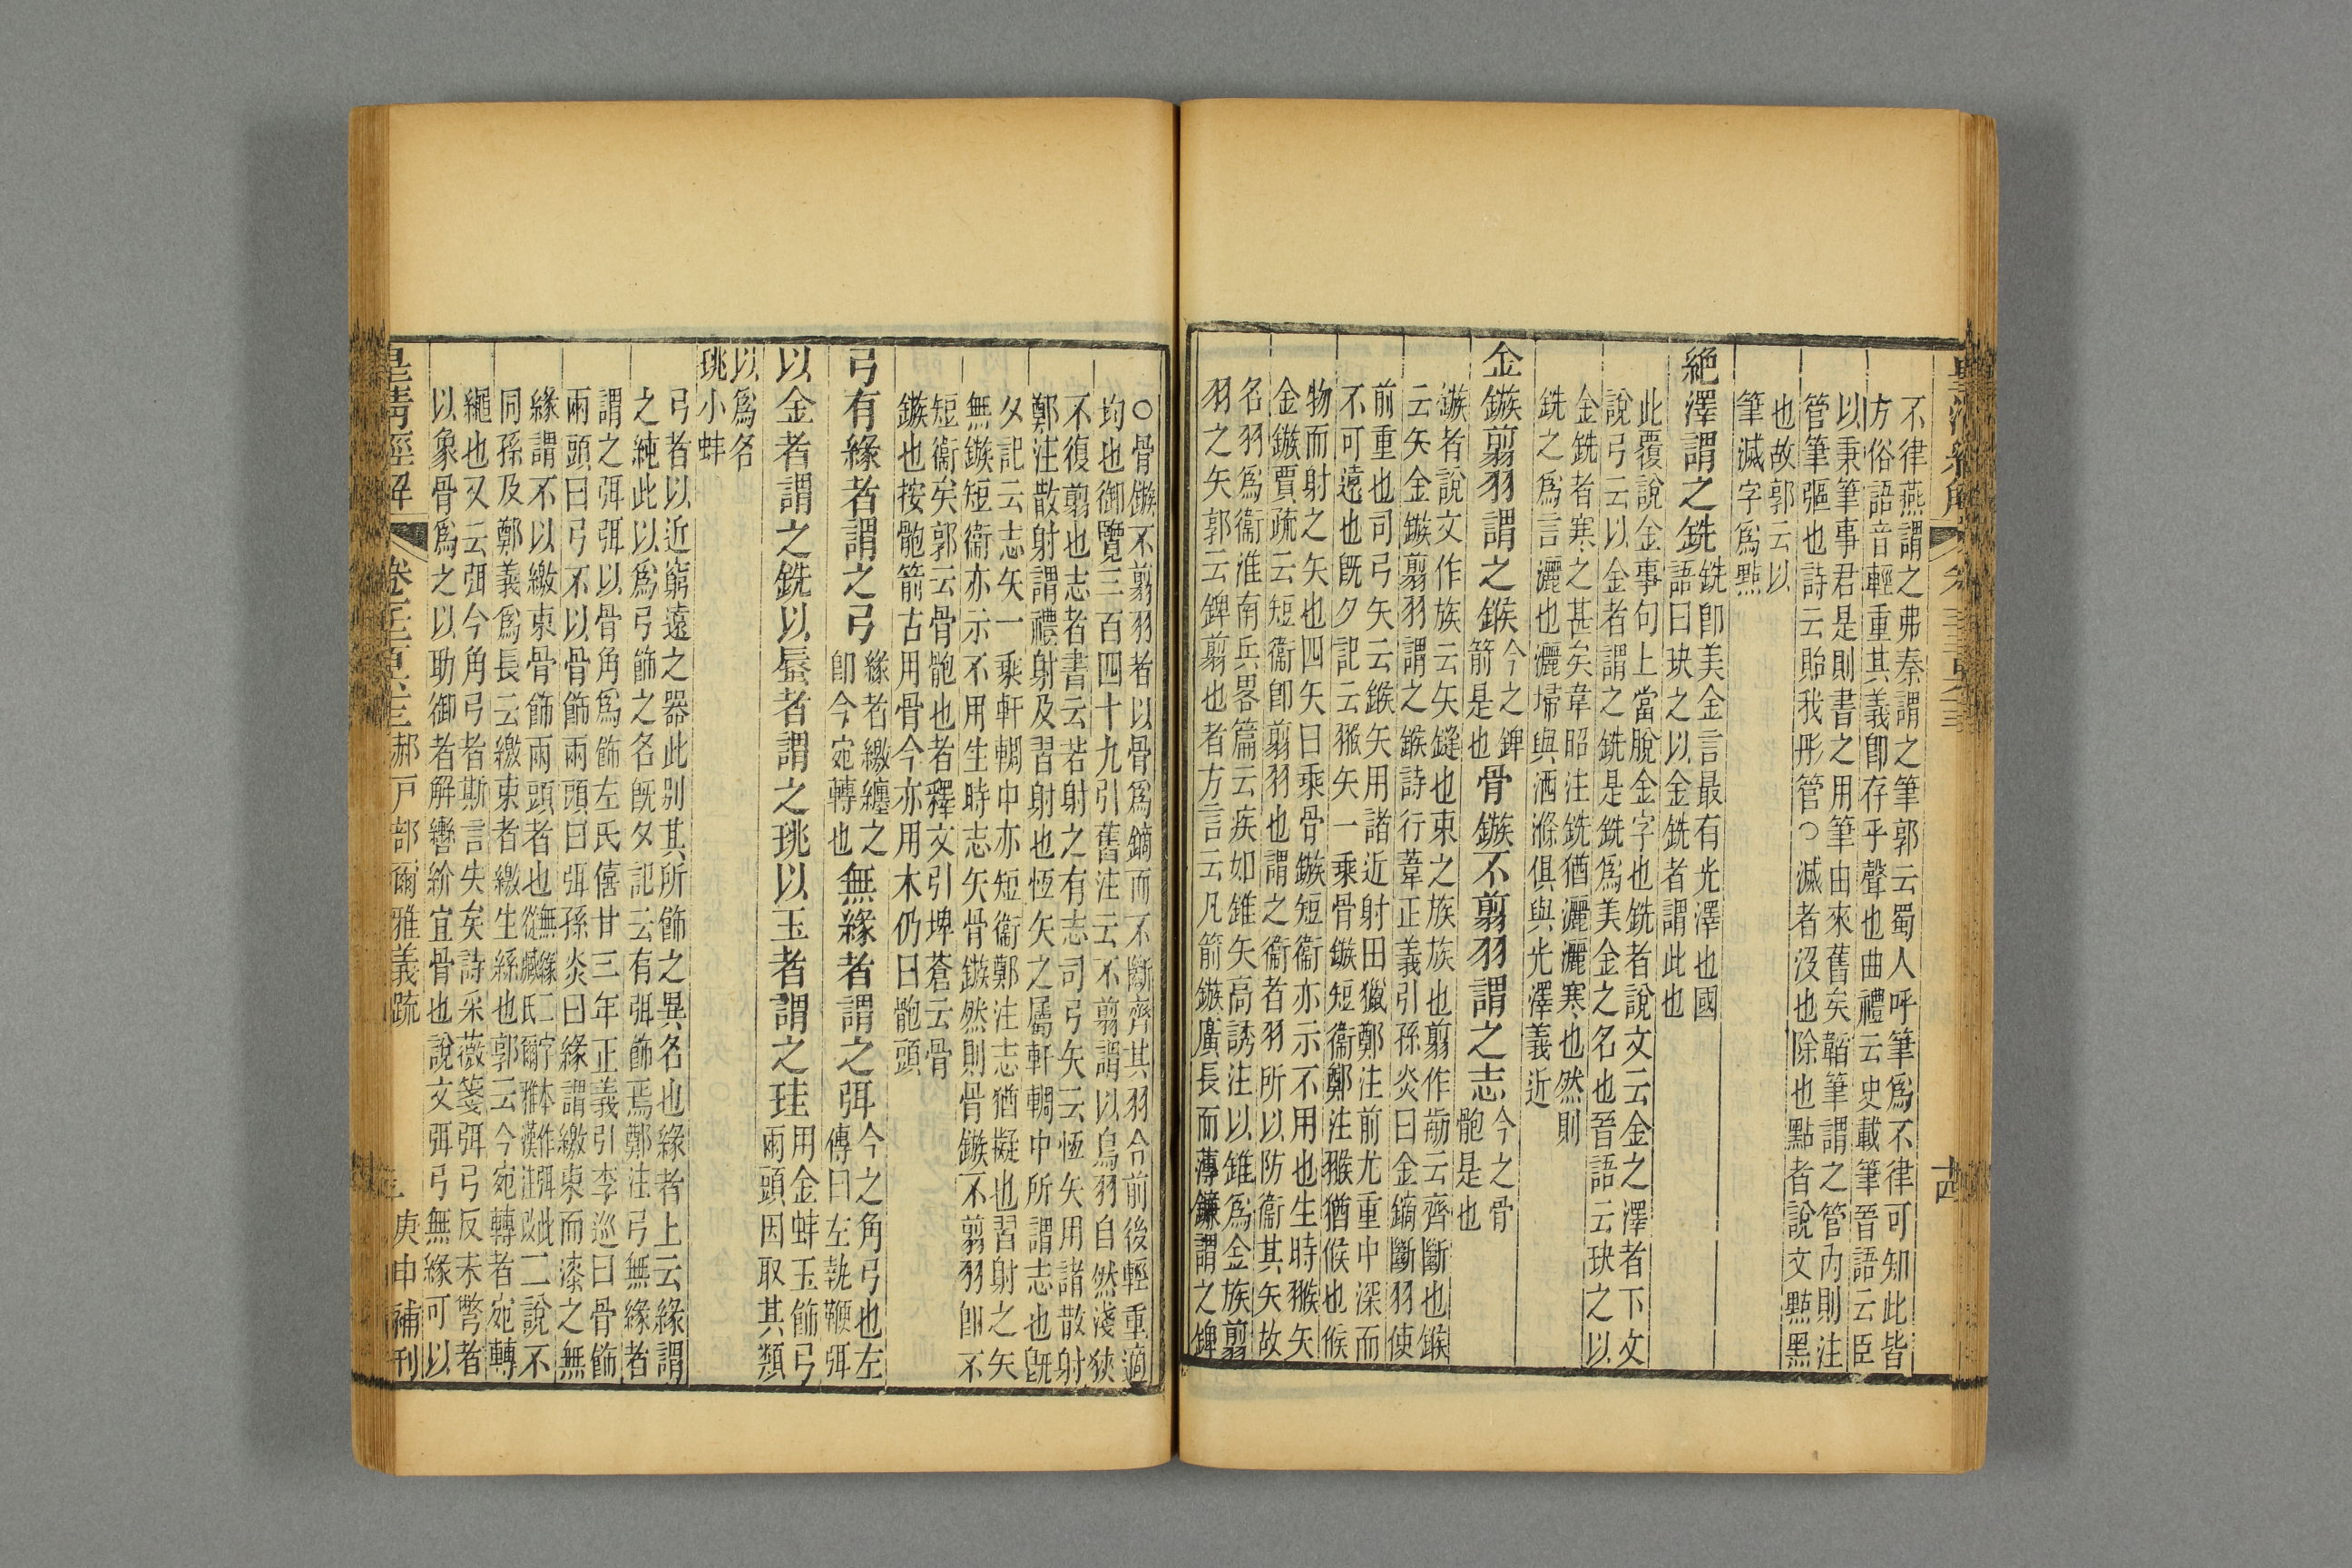 不律燕謂之弗秦謂之筆郭云蜀人呼筆爲不律可知此皆
方俗語音輕重其義卽存乎聲也曲禮云史載筆晉語云臣
以秉筆事君是則書之用筆由來舊矣韜筆謂之管內則注
管筆彄也詩云貽我彤管○滅者沒也除也點者說文㸃黑
也故郭云以
筆滅字爲㸃
絕澤謂之銑
銑卽美金言最有光澤也國
語曰玦之以金銑者謂此也
此覆說金事句上當脫金字也銑者說文云金之澤者下文
說弓云以金者謂之銑是銑爲美金之名也晉語云玦之以
金銑者寒之甚矣韋昭注銑猶灑灑寒也然則
銑之爲言灑也灑埽與洒滌俱與光澤義近
金鏃翦羽謂之鍭
今之錍
箭是也
骨鏃不翦羽謂之志
今之骨
骲是也
鏃者說文作族云矢鏠也束之族族也翦作云齊斷也鍭
云矢金鏃翦羽謂之鍭詩行葦正義引孫炎曰金鏑斷羽使
前重也司弓矢云鍭矢用諸近射田獵鄭注前尤重中深而
不可遠也旣夕記云猴矢一乘骨鏃短衞鄭注猴猶候也候
物而射之矢也四矢曰乘骨鏃短衞亦示不用也生時猴矢
金鏃賈疏云短衞卽翦羽也謂之衞者羽所以防衞其矢故
名羽爲衞淮南兵畧篇云疾如錐矢高誘注以錐爲金族翦
羽之矢郭云錍翦也者方言云凡箭鏃廣長而薄鐮謂之錍
十四
○骨鏃不翦羽者以骨爲鏑而不斷齊其羽令前後輕重適
均也御覽三百四十九引舊注云不翦謂以鳥羽自然淺狹
不復翦也志者書云若射之有志司弓矢云恆矢用諸散射
鄭注散射謂禮射及習射也恆矢之屬軒輖中所謂志也旣
夕記云志矢一乘軒輖中亦短衞鄭注志猶擬也習射之矢
無鏃短衞亦示不用生時志矢骨鏃然則骨鏃不翦羽卽不
短衞矣郭云骨骲也者釋文引埤蒼云骨
鏃也按骲箭古用骨今亦用木仍曰骲頭
弓有緣者謂之弓
緣者繳纏之
卽今宛轉也
無緣者謂之弭
今之角弓也左
傳曰左執鞭弭
以金者謂之銑以蜃者謂之珧以玉者謂之珪
用金蚌玉飾弓
兩頭因取其類
以爲名
珧小蚌
弓者以近窮遠之器此別其所飾之異名也緣者上云緣謂
之純此以爲弓飾之名旣夕記云有弭飾焉鄭注弓無緣者
謂之弭弭以骨角爲飾左氏僖廿三年正義引李巡曰骨飾
兩頭曰弓不以骨飾兩頭曰弭孫炎曰緣謂繳束而漆之無
緣謂不以繳束骨飾兩頭者也
無緣二字本作弭此
從臧氏爾雅漢注改
二說不
同孫及鄭義爲長云繳束者繳生絲也郭云今宛轉者宛轉
繩也又云弭今角弓者斯言失矣詩采薇箋弭弓反末彆者
以象骨爲之以助御者解轡紒宜骨也說文弭弓無緣可以
皇清經解
卷一千二百六十三
郝戸部爾雅義疏
庚申補刊